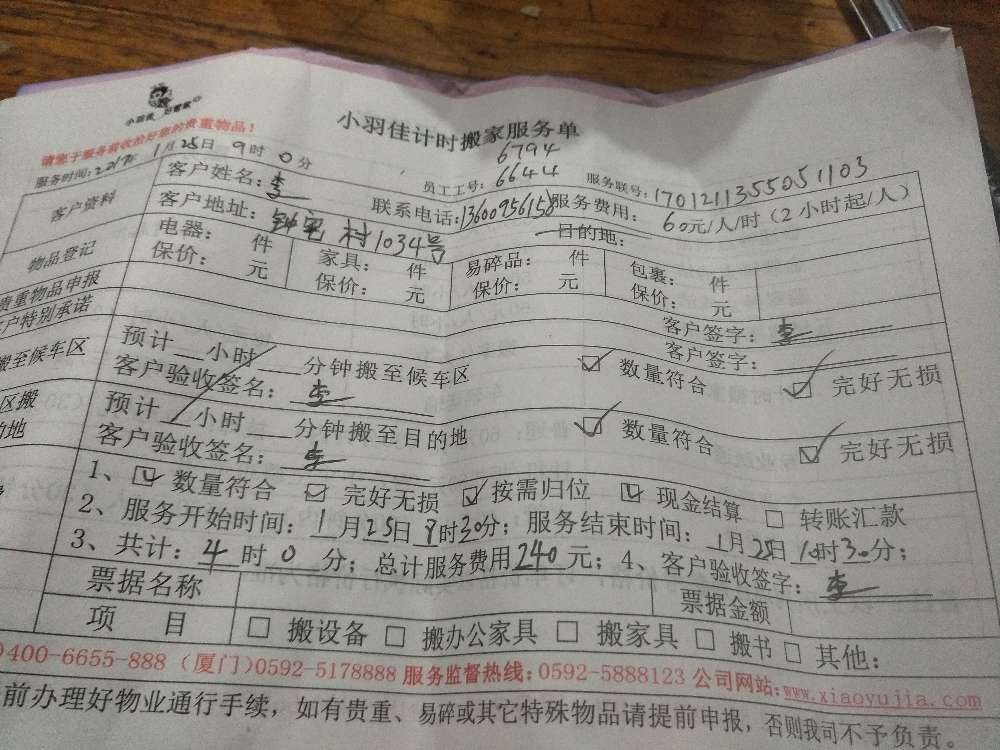 小羽佳 好管家
小羽佳计时搬家服务单
请您于服务前收拾好您的贵重物品!
6794
服务时间:2017年 1月25日 9时 0分 员工工号: 6644 服务联号: 1701211355051103
客户资料 客户姓名: 李 联系电话:13600956158 服务费用: 60元/人/时(2小时起/人)
客户地址: 钟宅村1034号 目的地:
物品登记 电器: 件 家具: 件 易碎品: 件 包裹: 件
保价: 元 保价: 元 保价: 元 保价: 元
贵重物品申报 客户签字: 李
客户特别承诺 客户签字:
搬至候车区 预计 小时 分钟搬至候车区 ☑ 数量符合 ☑ 完好无损
客户验收签名: 李
区搬 预计 小时 分钟搬至目的地 ☑ 数量符合 ☑ 完好无损
的地 客户验收签名: 李
1、☑ 数量符合 ☑ 完好无损 ☑ 按需归位 ☑ 现金结算 □ 转账汇款
2、服务开始时间: 1月25日 8时30分; 服务结束时间: 1月25日 10时30分;
3、共计: 4 时 0 分; 总计服务费用 240 元; 4、客户验收签字: 李
票据名称 票据金额
项 目 □ 搬设备 □ 搬办公家具 □ 搬家具 □ 搬书 □ 其他:
)400-6655-888 (厦门)0592-5178888 服务监督热线: 0592-5888123 公司网站: www.xiaoyujia.com
前办理好物业通行手续,如有贵重、易碎或其它特殊物品请提前申报,否则我司不予负责。